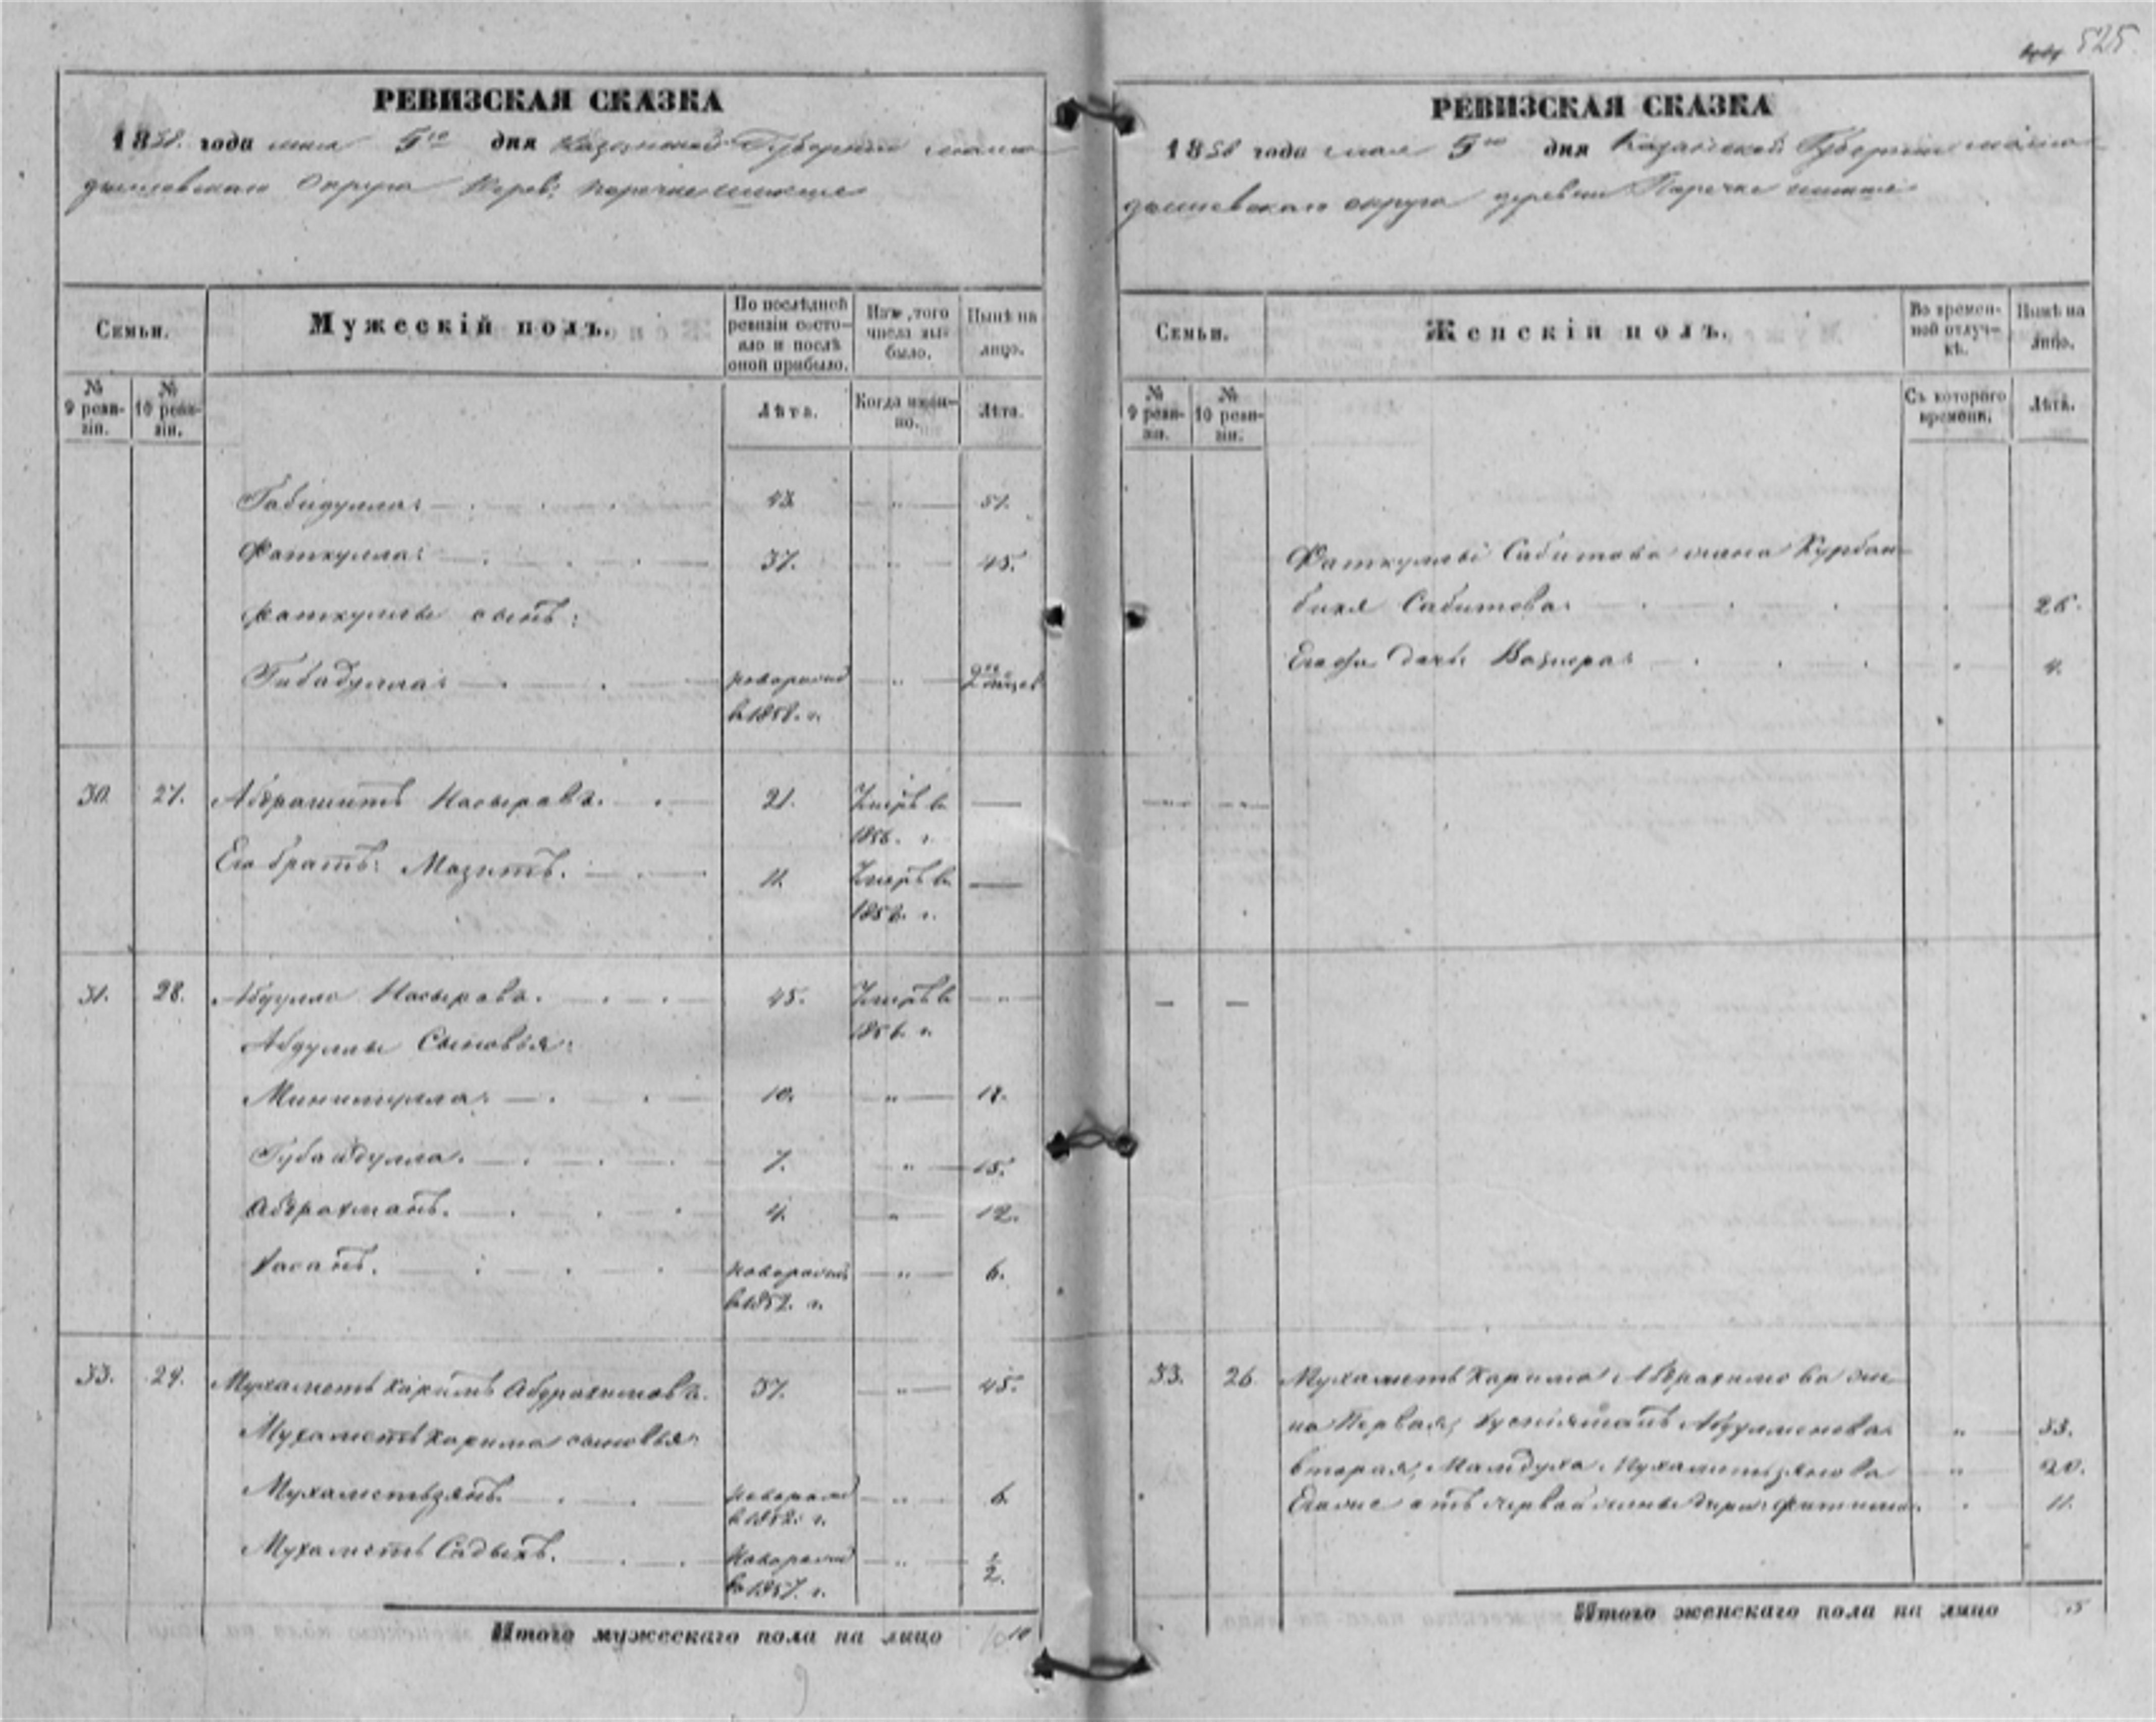 525
РЕВИЗСКАЯ СКАЗКА
1858. года мая 5го дня Казанской Губерніи мама-
дышевскаго Округа Дерев:
Семьи.
Мужескій полъ.
По послѣдней ревизіи состо-яло и послѣ оной прибыло.
Изъ того числа вы-было.
Нынѣ на лицо.
№ 9 реви-зіи.
№ 10 реви-зіи.
Лѣта.
Когда имен-но.
Лѣта.
Габидулла: 43. " 51.
Фаткулла: 37. " 45.
Фаткуллы сынъ:
Гибадулла: новорожд " 2
в 1858. г.
30. 27. Абдрашитъ Насыровъ. 21. Умеръ в
1856. г.
Его братъ: Мазитъ. 11. Умеръ в
г.
31. 28. Абдулла Насыровъ. 45. Умеръ в "
1856. г.
Абдуллы Сыновья:
Минигулла: 10. " 18.
Губайдулла. 7. " 15.
Абдрахманъ. 4. " 12.
Хасанъ. новорожд " 6.
в 1852. г.
33. 29. Мухаметъ Каримъ Абдрахимовъ. 37. " 45.
Мухаметъ Карима сыновья:
Мухаметьзянъ. новорожд " 6.
в 1852. г.
Мухаметь Садыкъ. Новорожд " 1/2.
в 1857. г.
Итого мужескаго пола на лицо 10
РЕВИЗСКАЯ СКАЗКА
1858 года мая 5го дня Казанской Губерніи мама-
дышевскаго округа деревни
Семьи.
Женскій полъ.
Во времен-ной отлуч-кѣ.
Нынѣ на лицо.
№ 9 реви-зіи.
№ 10 реви-зіи.
Съ котораго времени.
Лѣта.
Фаткуллы Сабитова жена Курбан-
бика Сабитова. 26.
Его дочь 4.
33. 26. Мухаметь Карима Абдрахимова же-
на Первая, Абдулменова " 33.
вторая, Мамдуха Мухаметьзянова " 20.
Его же отъ первой жены дочь Фатима. 11.
Итого женскаго пола на лицо 5